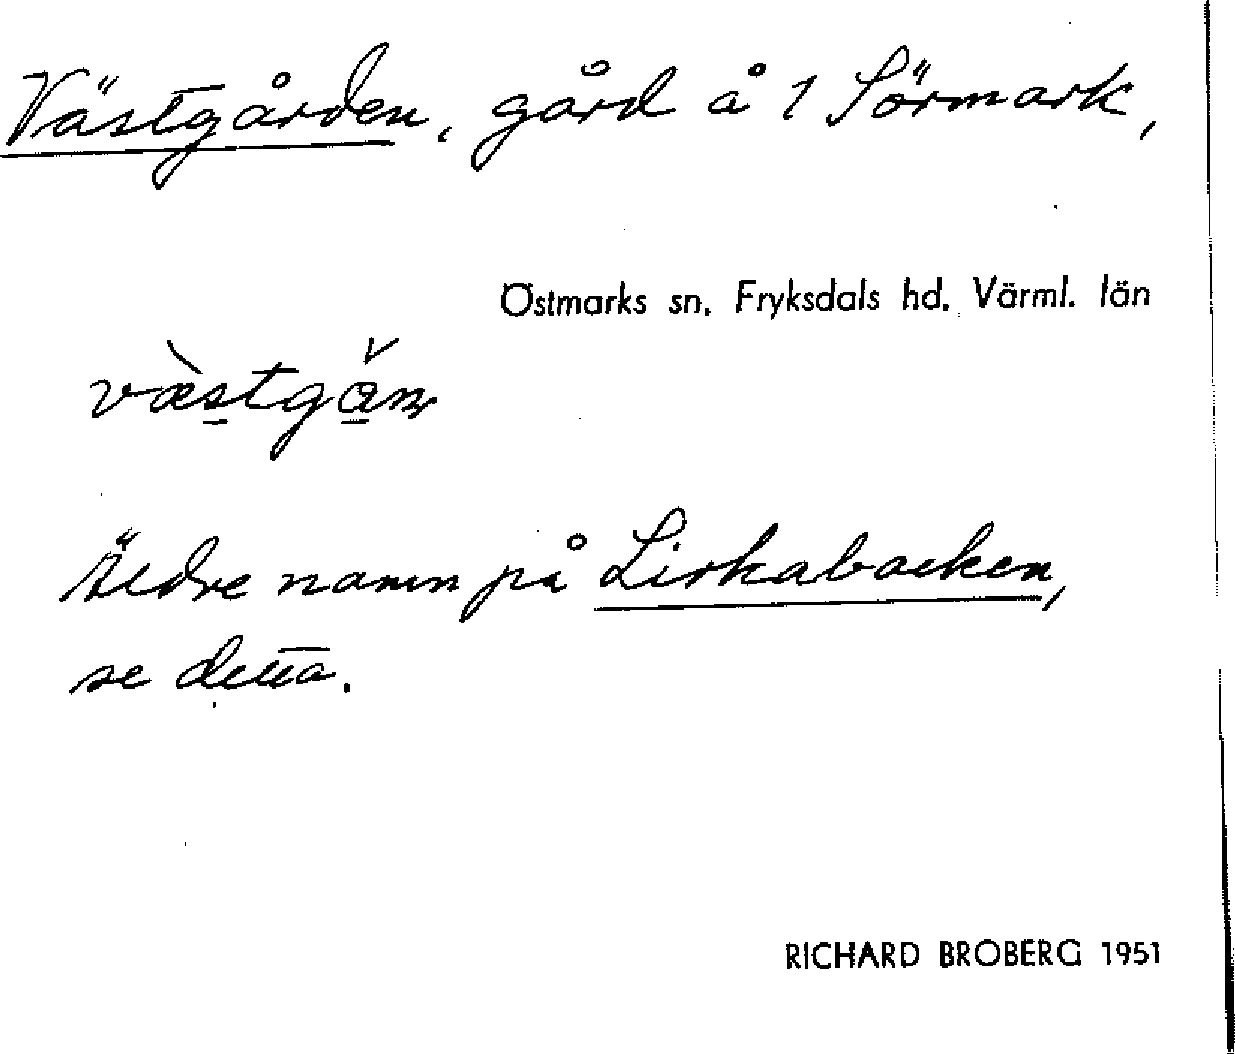 Västgården, gård å 1 Sörmark,
Östmarks sn. Fryksdals hd. Värml. län
Äldre namn på Lirkabacken,
se detta.
RICHARD BROBERG 1951